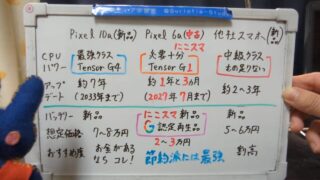 Pixel 10a(新品) Pixel 6a(中古) 他社スマホ(新品)
にこスマ
CPU パワー 最強クラス Tensor G4 必要十分 Tensor G1 中級クラス
アップデート 約7年 (2033年まで) 約1年と3ヵ月 (2027年7月まで) 約2〜3年
バッテリー 新品 にこスマ 新品
G認定再生品
想定価格 7〜8万円 2〜3万円 5〜6万円
おすすめ度 お金がある ならコレ! 節約派には最強 割高